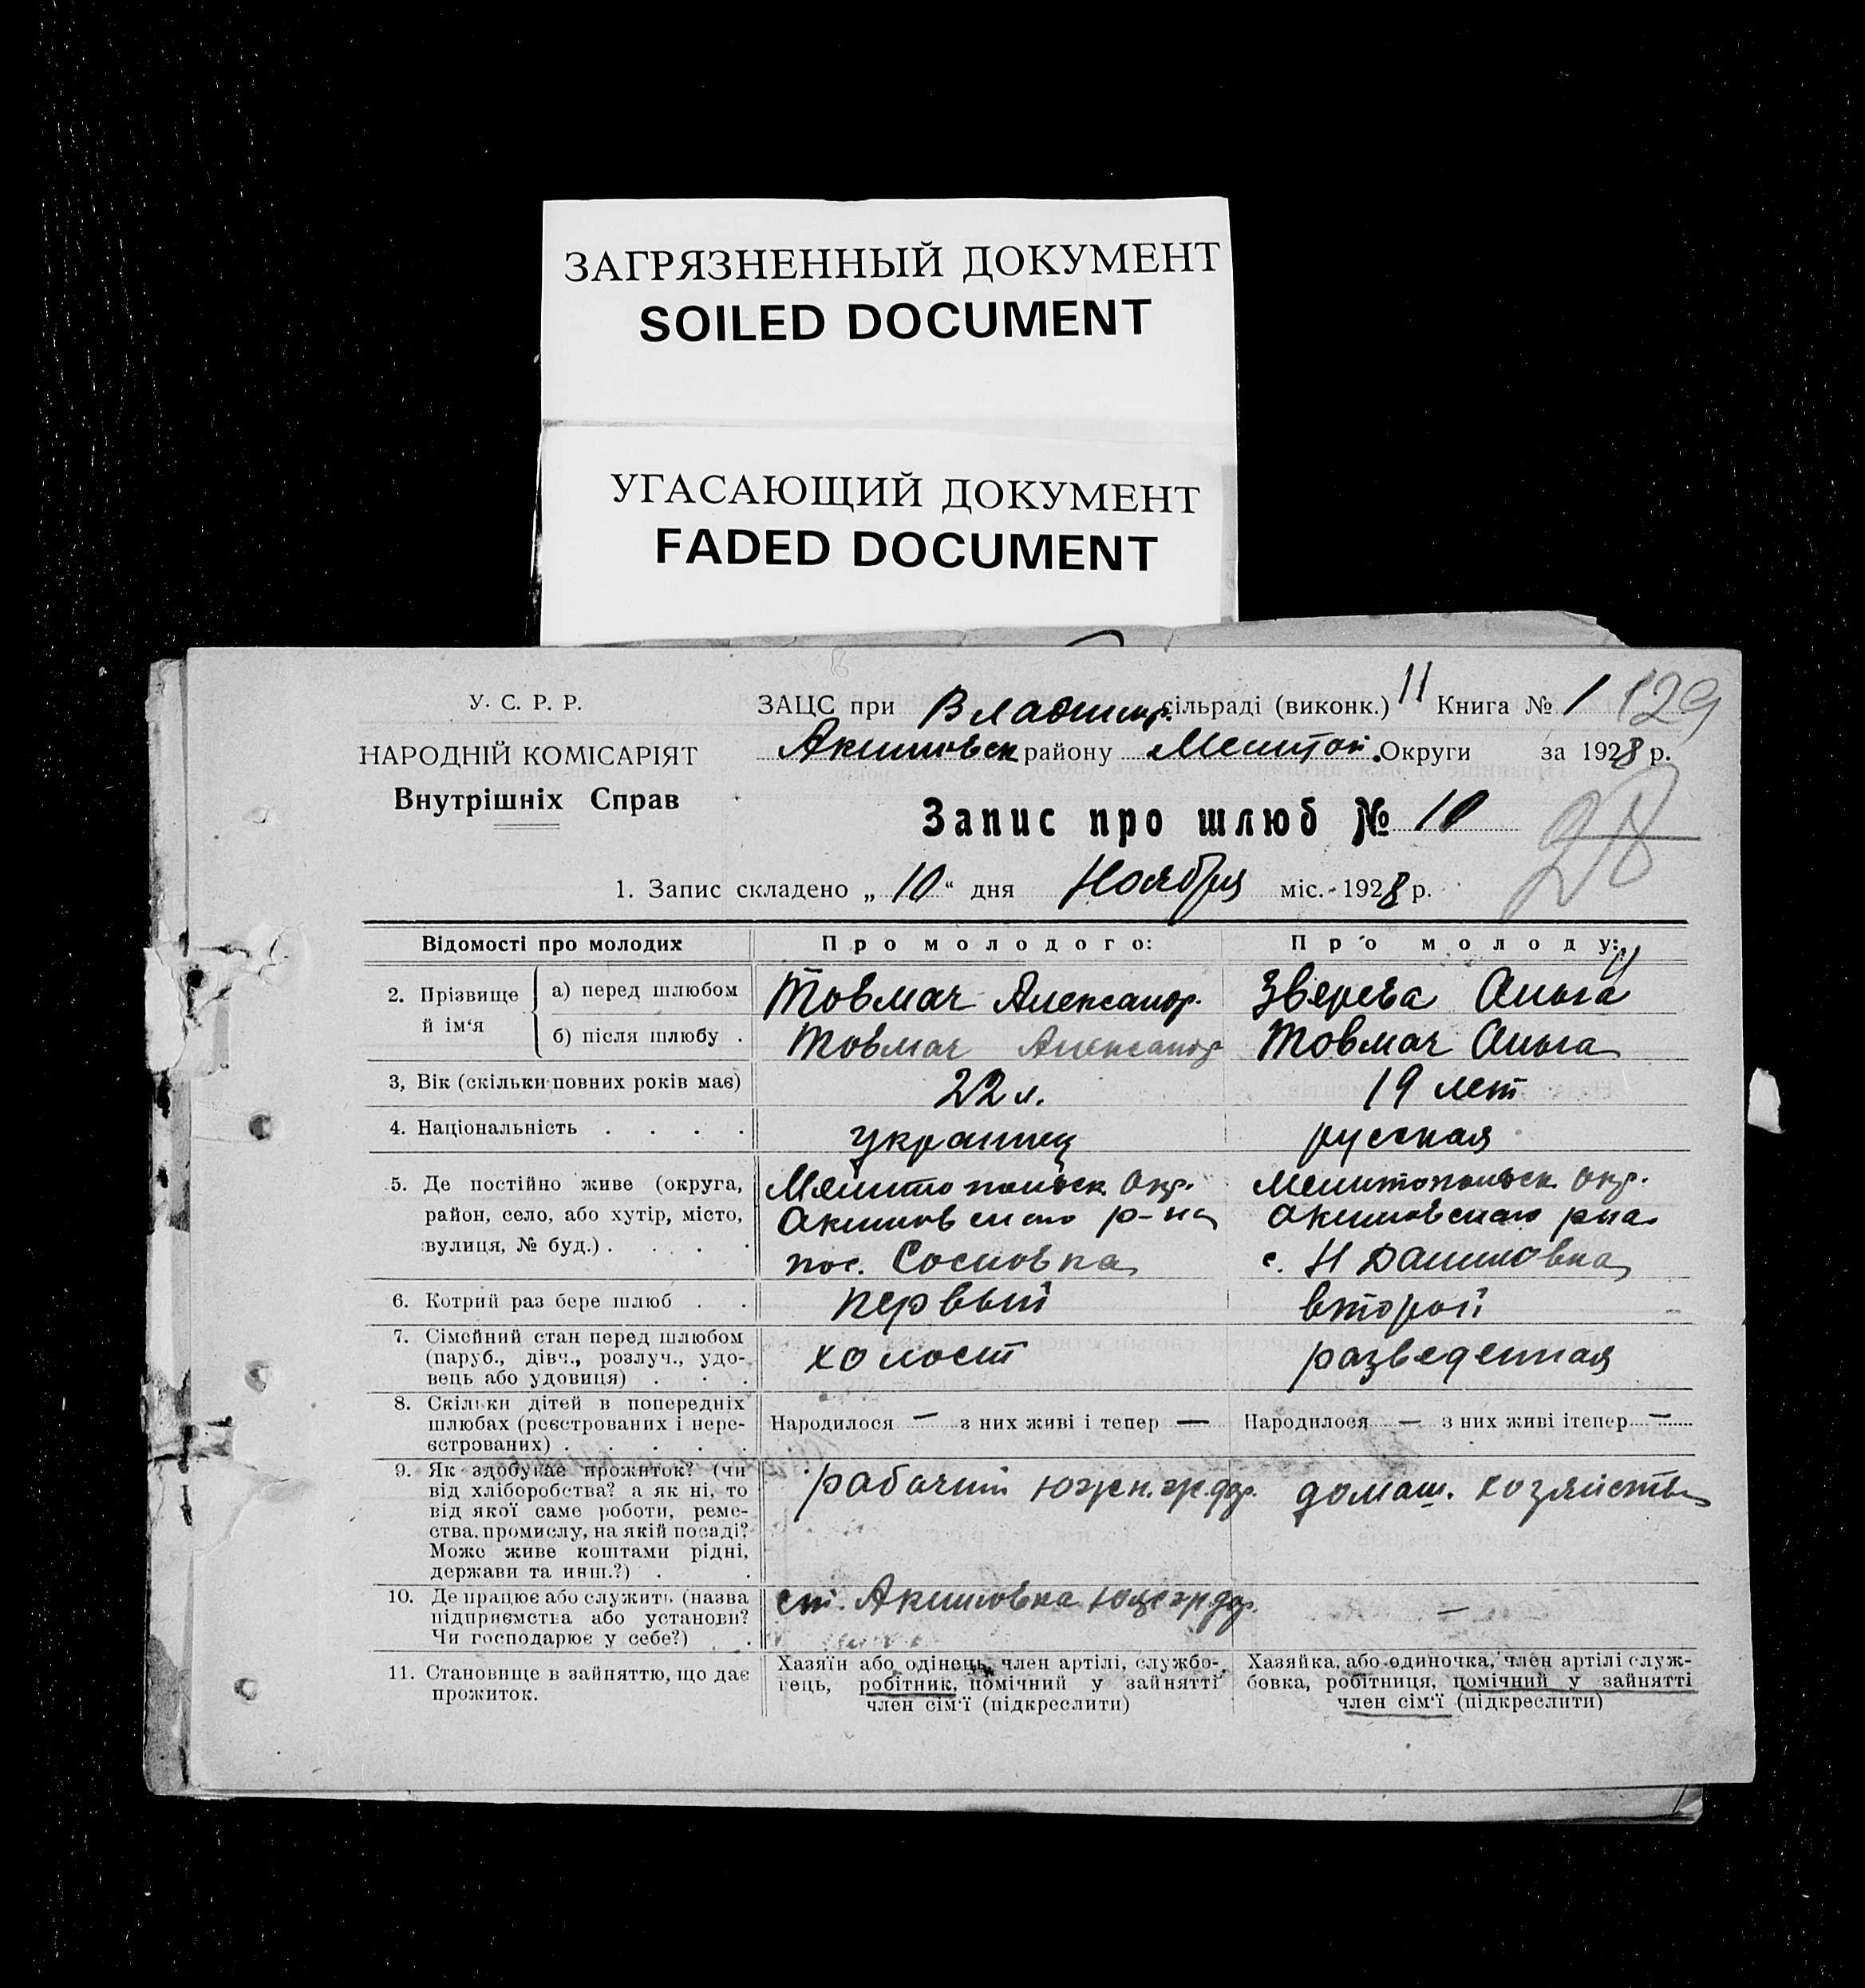 ЗАГРЯЗНЕННЫЙ ДОКУМЕНТ
SOILED DOCUMENT
УГАСАЮЩИЙ ДОКУМЕНТ
FADED DOCUMENT
У. С. Р. Р.
НАРОДНІЙ КОМІСАРІЯТ
Внутрішніх Справ
ЗАЦС при Владимир. сільраді (виконк.) 11 Книга № 1 129
Акимовск району Мелитоп. Округи за 1928 р.
Запис про шлюб № 10
28
1. Запис складено „ 10 “ дня Ноября міс. 1928 р.
Відомості про молодих Про молодого: Про молоду:
2. Прізвище й ім‘я
а) перед шлюбом Товмач Александр. Зверева Ольга
б) після шлюбу . Товмач Александр Товмач Ольга
3, Вік (скільки повних років має) 22 л. 19 лет
4. Національність . . . . украинец русская
5. Де постійно живе (округа, Мелитопольск. Окр. Мелитопольск. Окр.
район, село, або хутір, місто, Акимовского р-на Акимовского рна
вулиця, № буд.) . . . . пос. Сосновка с. Н Даниловка
6. Котрий раз бере шлюб . . первый второй
7. Сімейний стан перед шлюбом
(паруб., дівч., розлуч., удо- холост разведенная
вець або удовиця) . . .
8. Скільки дітей в попередніх
шлюбах (реєстрованих і нере- Народилося — з них живі і тепер — Народилося — з них живі і тепер —
єстрованих) . . . . .
9. Як здобуває прожиток? (чи рабочий южн.ж.дор. домаш. хозяйство
від хліборобства? а як ні, то
від якої саме роботи, реме-
ства, промислу, на якій посаді?
Може живе коштами рідні,
держави та инш.?) . .
10. Де працює або служить (назва ст. Акимовка —
підприємства або установи?
Чи господарює у себе?) . .
11. Становище в зайняттю, що дає
прожиток.
Хазяїн або одінець, член артілі, службо-
вець, робітник, помічний у зайнятті
член сім‘ї (підкреслити)
Хазяйка, або одиночка, член артілі служ-
бовка, робітниця, помічний у зайнятті
член сім‘ї (підкреслити)